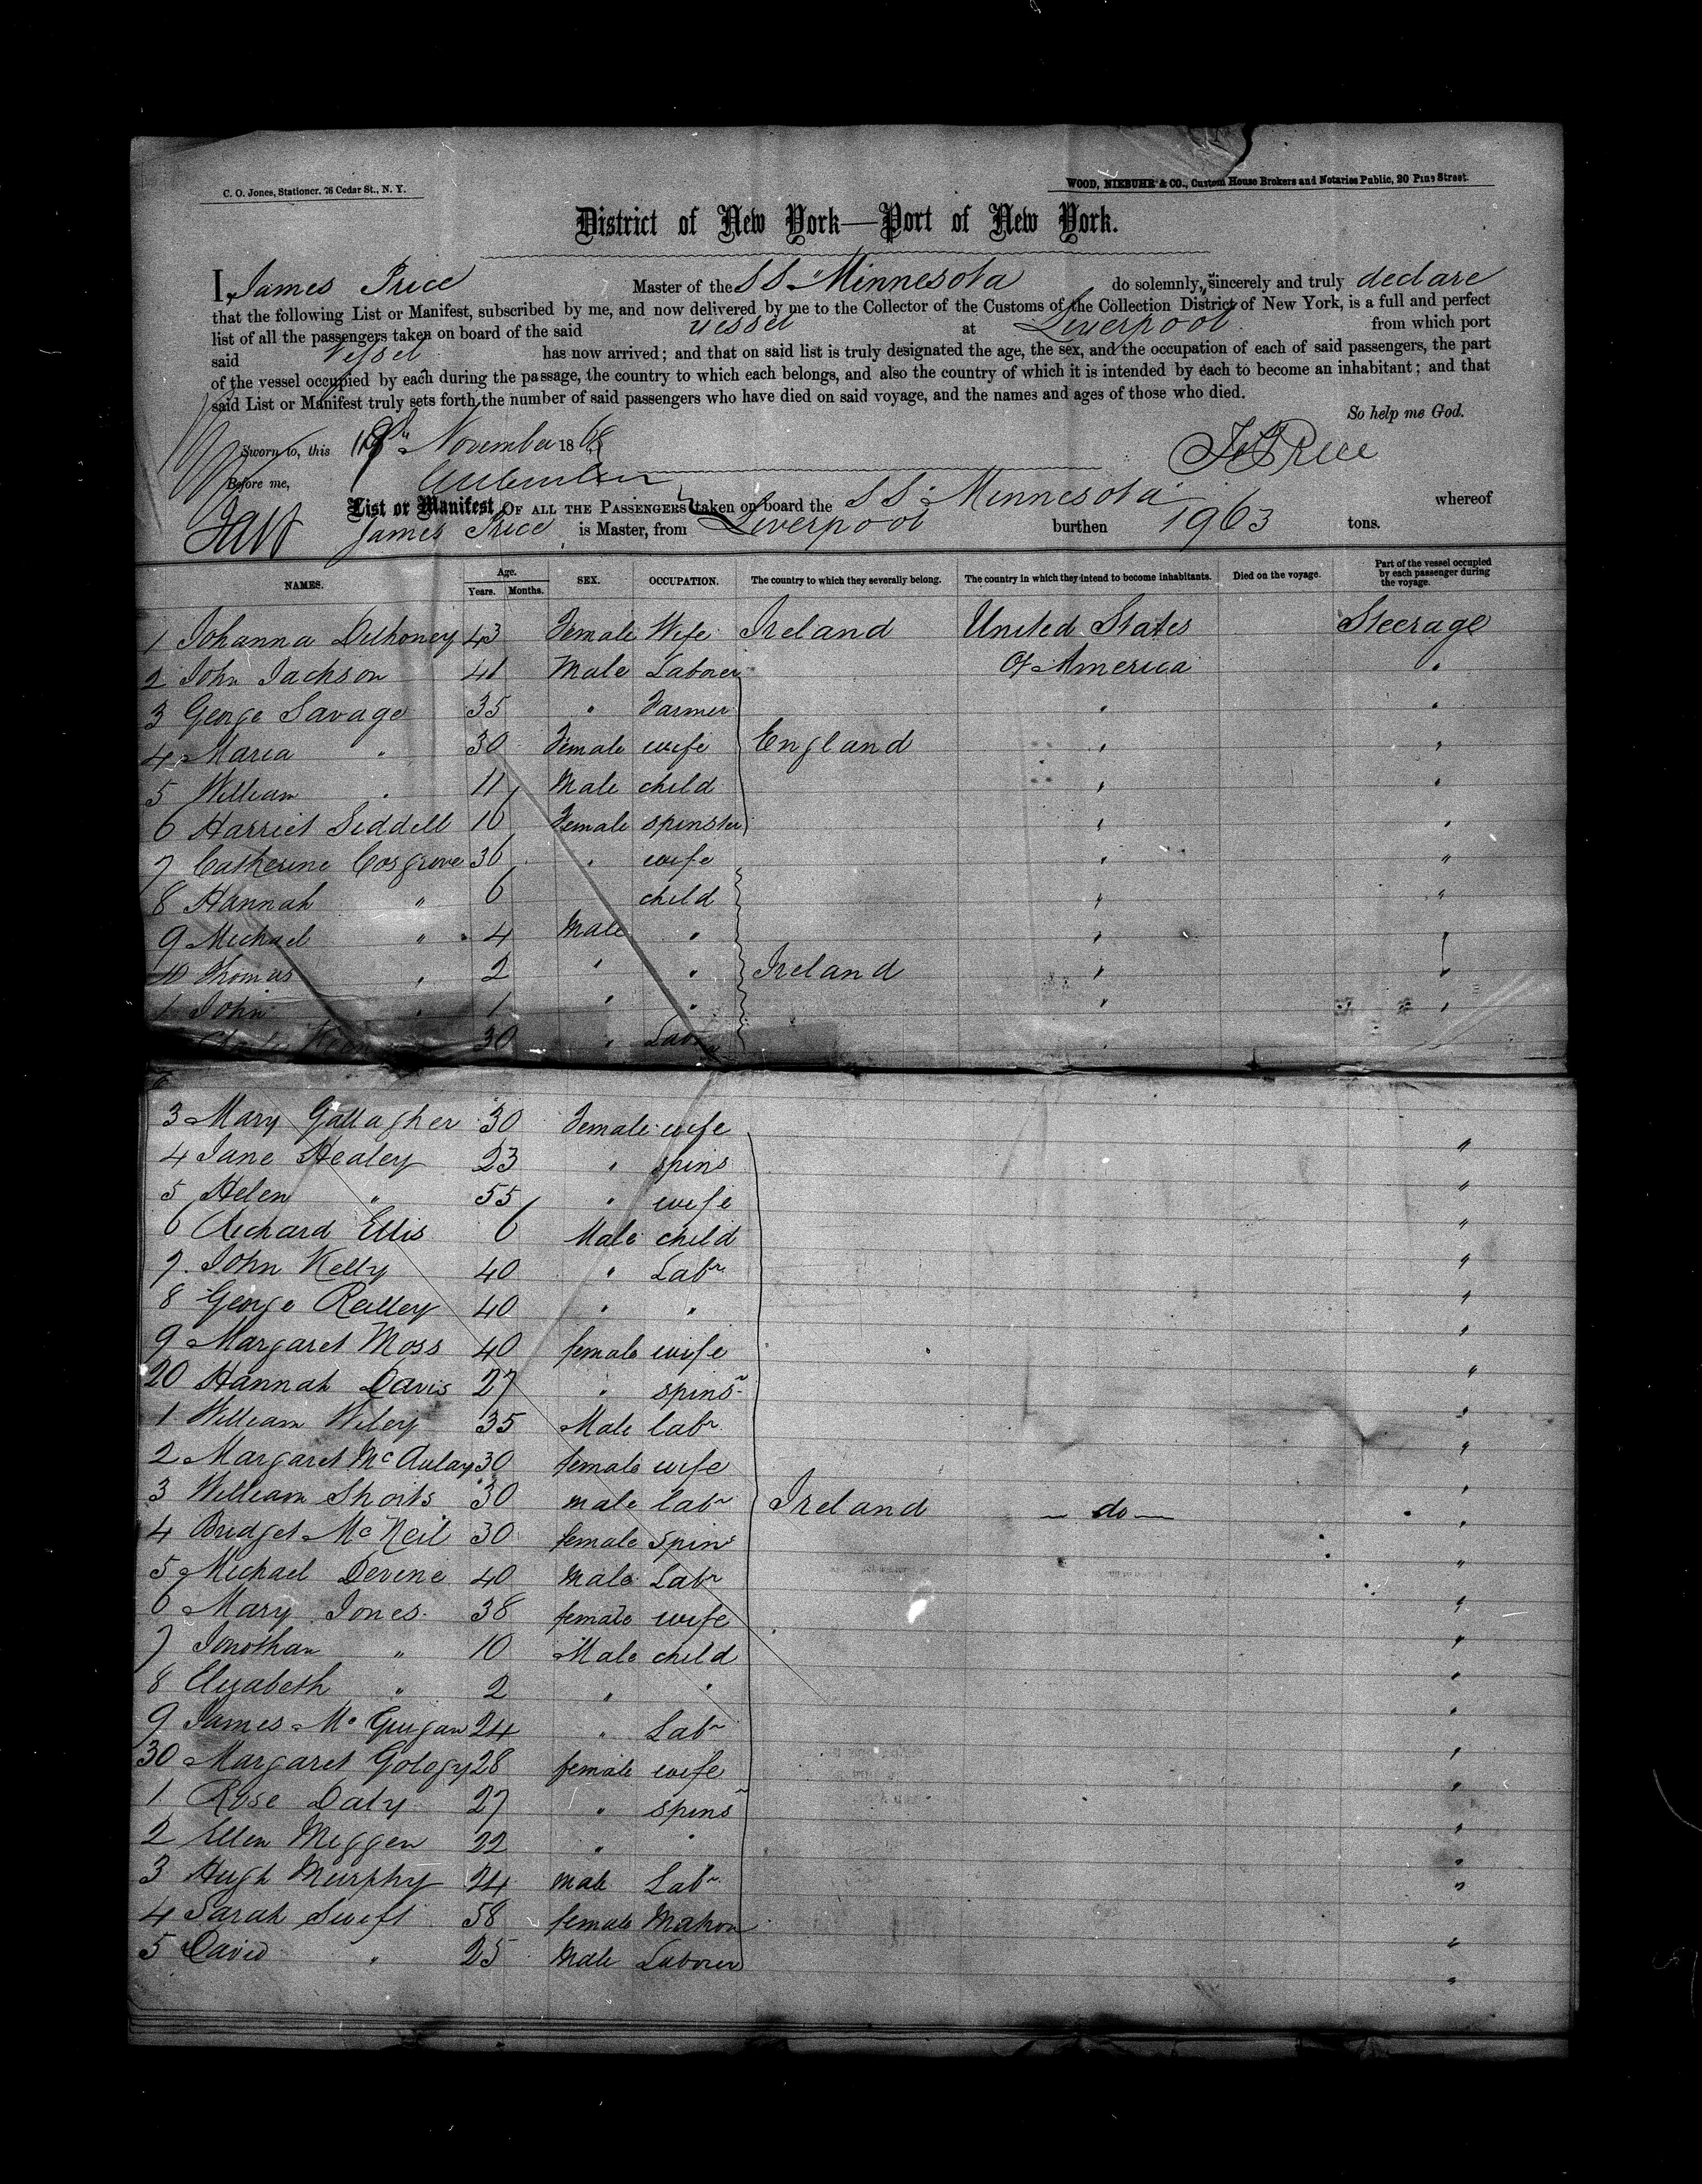 C. O. Jones, Stationer, 76 Cedar St., N. Y.
WOOD, NIEBUHR & CO., Custom House Brokers and Notaries Public, 20 Pine Street.
District of New York—Port of New York.
I, James Price Master of the SS "Minnesota do solemnly, sincerely and truly declare
that the following List or Manifest, subscribed by me, and now delivered by me to the Collector of the Customs of the Collection District of New York, is a full and perfect
list of all the passengers taken on board of the said vessel at Liverpool from which port
said Vessel has now arrived; and that on said list is truly designated the age, the sex, and the occupation of each of said passengers, the part
of the vessel occupied by each during the passage, the country to which each belongs, and also the country of which it is intended by each to become an inhabitant; and that
said List or Manifest truly sets forth the number of said passengers who have died on said voyage, and the names and ages of those who died.
So help me God.
Sworn to, this November 1868
Before me,
List or Manifest OF ALL THE PASSENGERS taken on board the SS. Minnesota whereof
James Price is Master, from Liverpool burthen 1963 tons.
NAMES. Age. Years. Months. SEX. OCCUPATION. The country to which they severally belong. The country in which they intend to become inhabitants. Died on the voyage. Part of the vessel occupied by each passenger during the voyage.
1 Johanna 43 Female Wife Ireland United States Steerage
2 John Jackson 41 Male Laborer Of America "
3 George Savage 35 " Farmer " "
4 Maria " 30 Female wife England " "
5 William " 11 Male child " "
6 Harriet Siddell 16 Female spinster " "
7 Catherine Cosgrove 36 " wife " "
8 Hannah " 6 child " "
9 Michael " 4 Male " " "
10 Thomas " 2 " " Ireland " "
1 John " 1 " " " "
30 " Labr "
3 Mary Gallagher 30 Female wife "
4 Jane Healey 23 " spins "
5 Helen " 55 " wife "
6 Richard Ellis 6 Male child "
7 John Kelly 40 " Labr "
8 George Reilley 40 " " "
9 Margaret Moss 40 female wife "
20 Hannah Davis 27 " spinsr "
1 William Wiley 35 Male labr "
2 Margaret McAulay 30 female wife "
3 William Shorts 30 male labr Ireland — do — "
4 Bridget McNeil 30 female spins "
5 Michael Devine 40 Male Labr "
6 Mary Jones 38 female wife "
7 Jonothan " 10 Male child "
8 Elizabeth " 2 " " "
9 James McGuigan 24 " Labr "
30 Margaret Gology 28 female wife "
1 Rose Daly 27 " spinsr "
2 Ellen Meggen 22 " " "
3 Hugh Murphy 24 male Labr "
4 Sarah Swift 58 female Matron "
5 David " 25 Male Laborer "